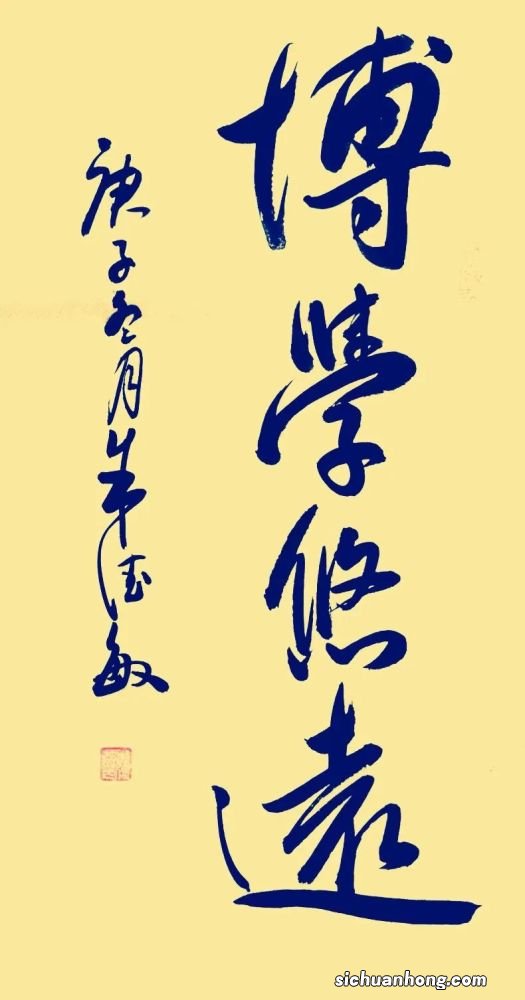 博學悠遠
庚子冬月朱德敏
sichuanhong.com